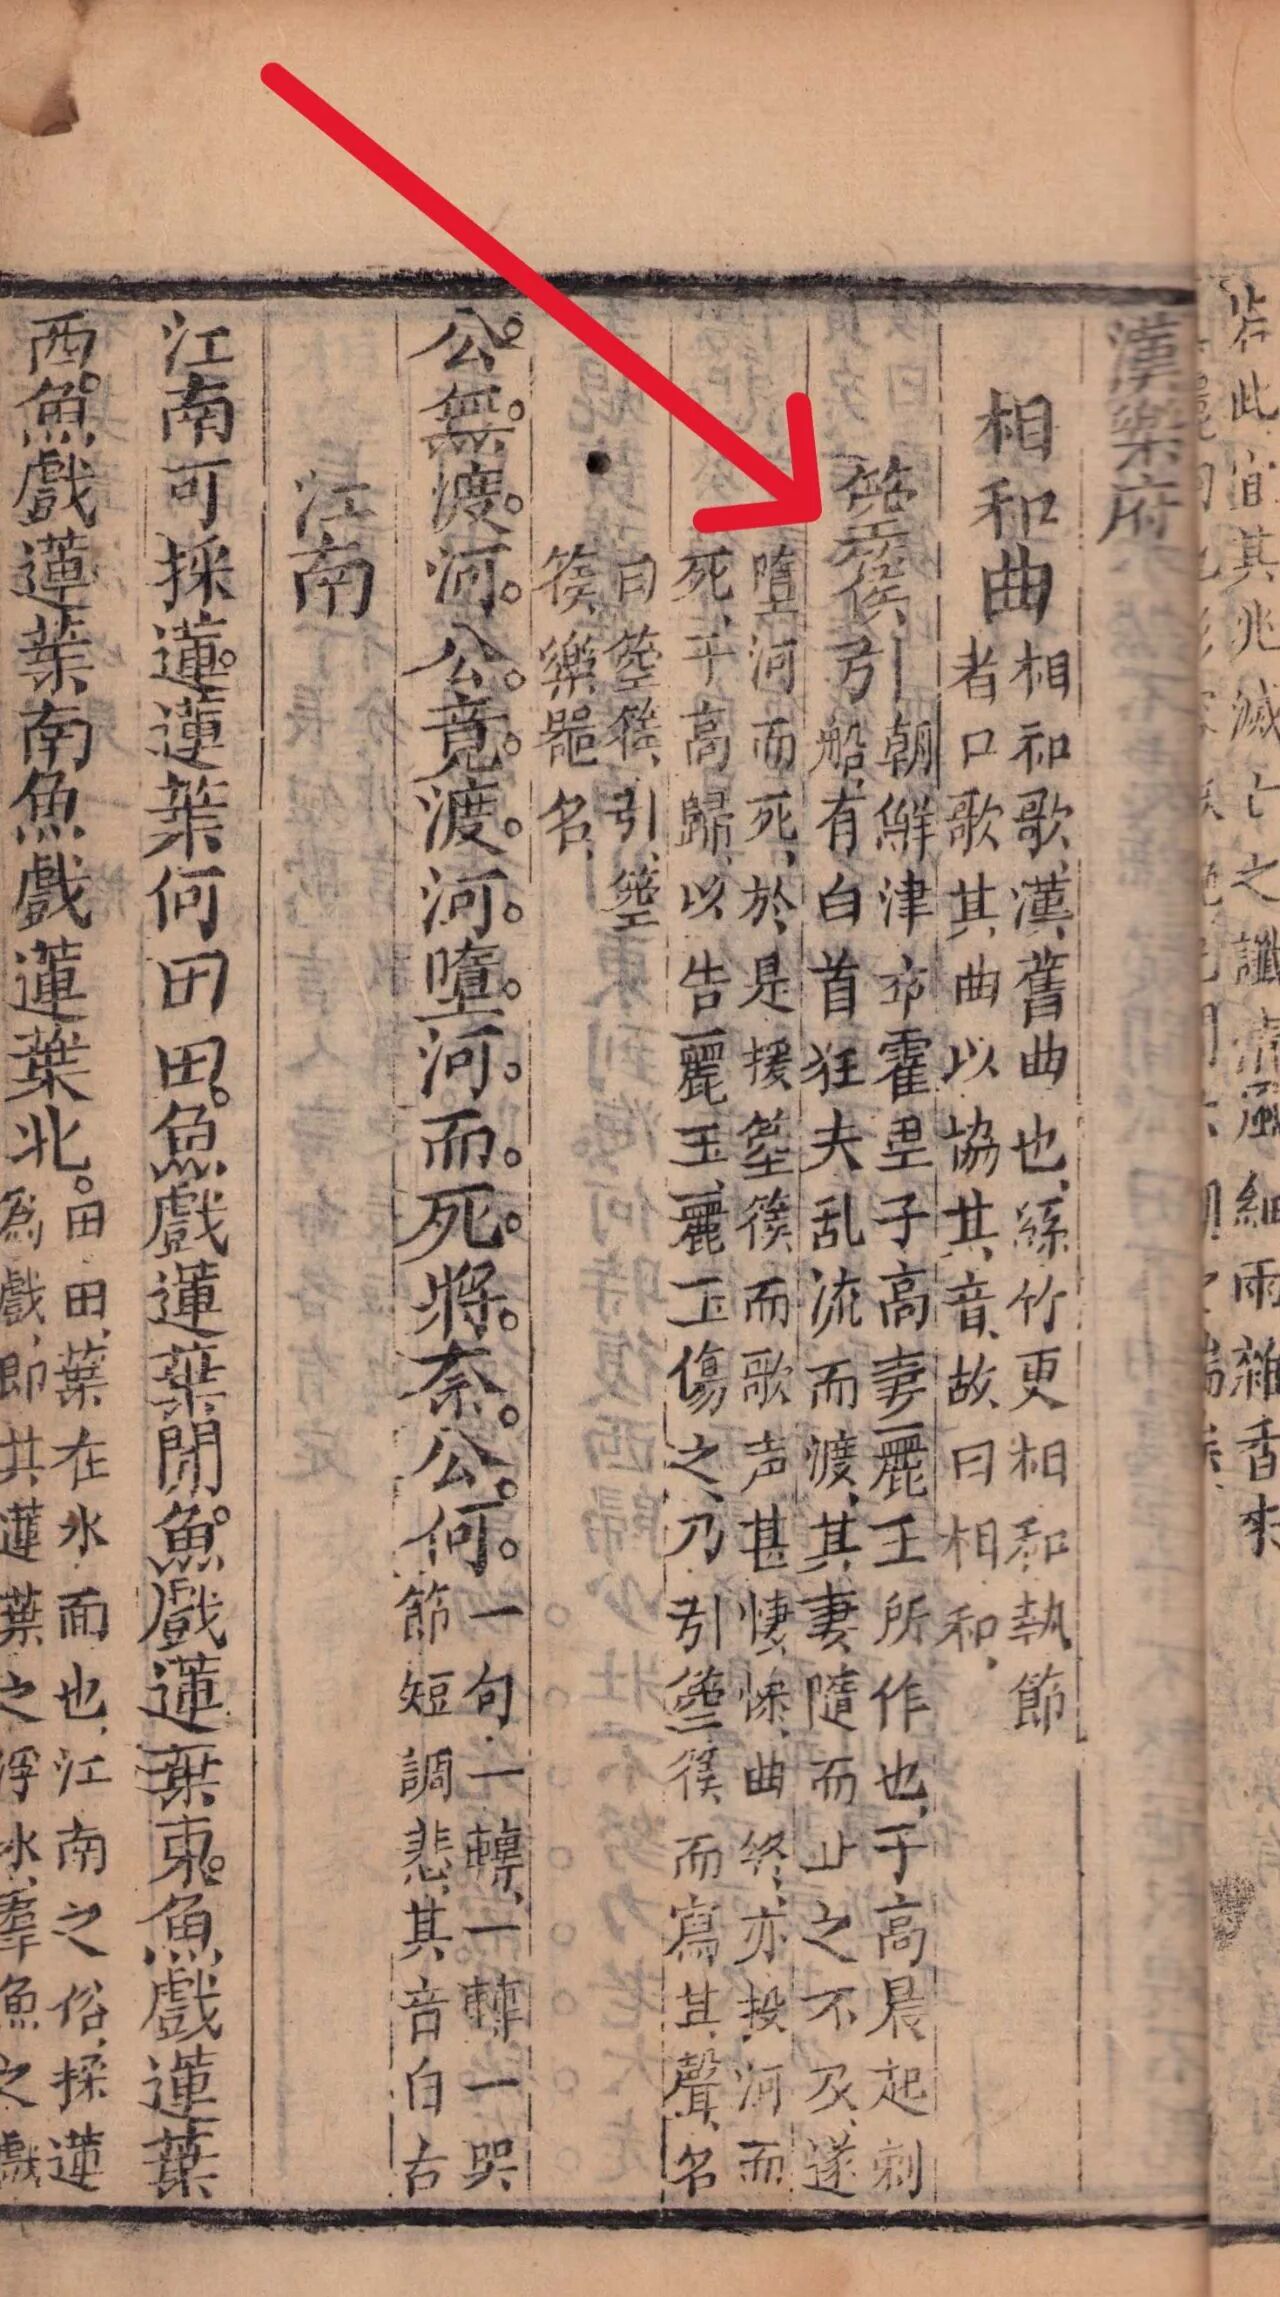 漢樂府
相和曲
相和歌、漢舊曲也、絲竹更相和執節
者口歌其曲以協其音、故曰相和、
箜篌引
朝鮮津卒霍里子高妻麗玉所作也、于高晨起刺
船、有白首狂夫乱流而渡、其妻隨而止之不及、遂
墮河而死、於是援箜篌而歌声甚悽慘、曲終、亦投河而
死、子高歸、以告麗玉、麗玉傷之、乃引箜篌而寫其聲、名
曰箜篌引、箜
篌、樂器名、
公。無。渡。河。公。竟。渡。河。墮。河。而。死。將。奈。公。何。
一句一轉、一轉一哭
節短調悲、其音自古
江南
江南可採蓮。蓮葉何田田。魚戲蓮葉閒。魚戲蓮葉東。魚戲蓮葉
西。魚戲蓮葉南魚戲蓮葉北。
田田、葉在水面也、江南之俗、採蓮
爲戲、即其蓮葉之浮水、羣魚之戲